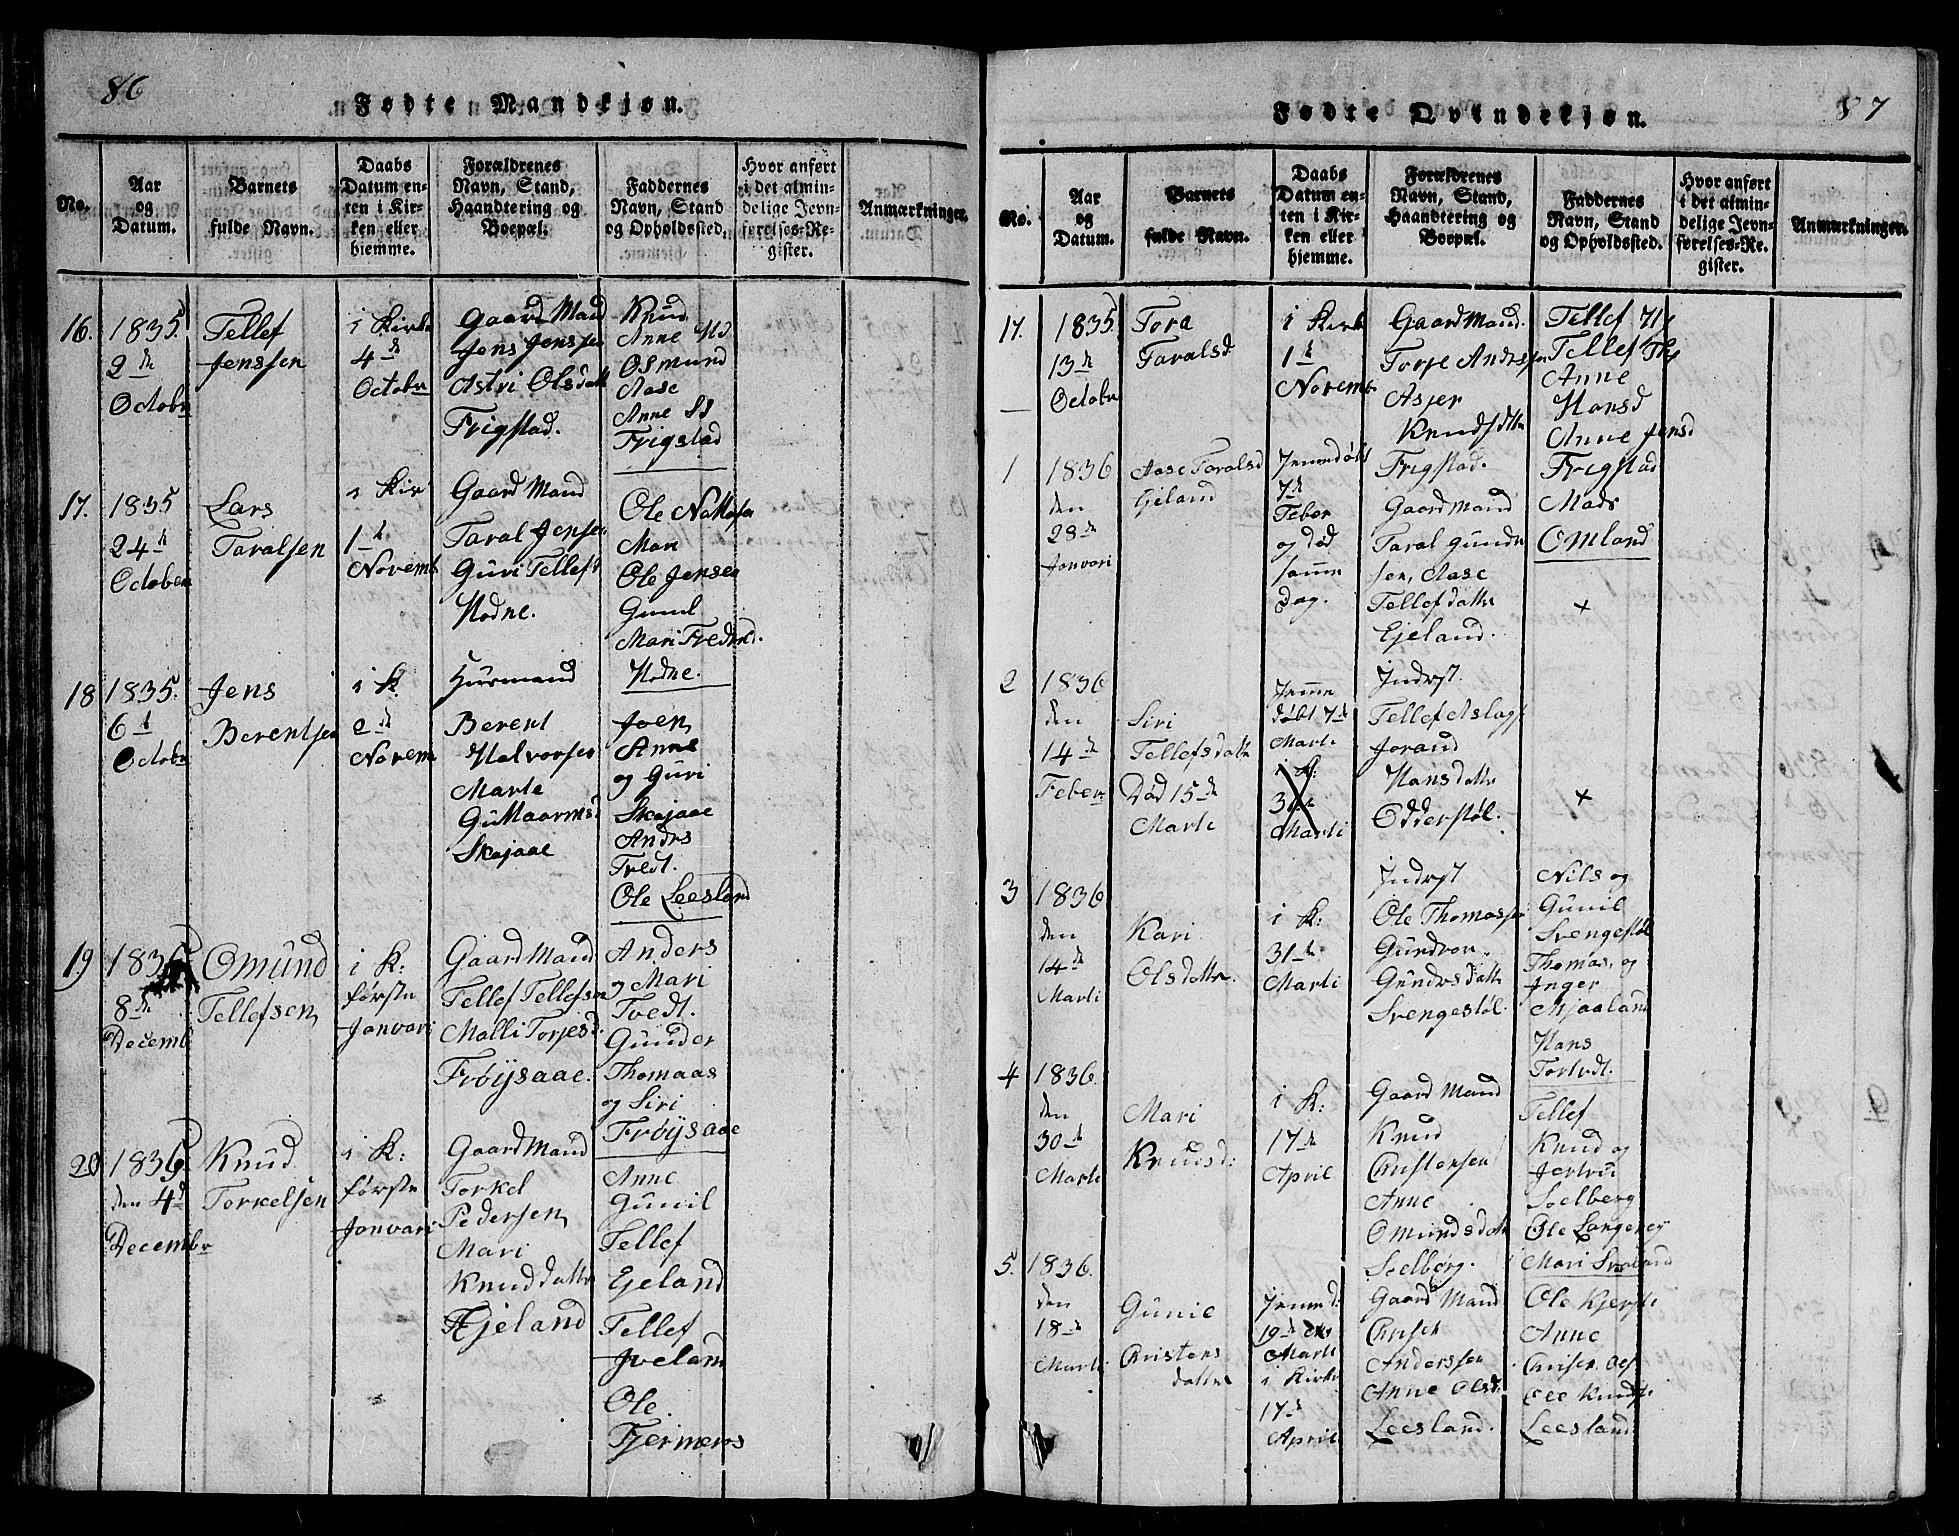 86
Fødte Mandkjøn.
No.
Aar
og
Datum.
Barnets
fulde Navn.
Daabs
Datum en-
ten i Kir-
ken eller
hiemme.
Forældrenes
Navn, Stand,
Haandtering og
Boepæl.
Faddernes
Navn, Stand
og Opholdssted.
Hvor anført
i det almin-
delige Jevn-
førelses-Re-
gister.
Anmærkninger.
16.
1835.
2 de
Octobr
Tellef
Jenssen
i Kirke
4 de
Octobr
Gaard Mand
Jens Jenssen
Astri Olsdatt
Frigstad.
Knud
Anne
Osmund
Aase
Anne
Frigstad
17.
1835
24 de
October
Lars
Taralsen
i Kir
1 te
Novemb
Gaard Mand
Taral Jense
Guri Tellefs
Nodne.
Ole
Mari
Ole Jensen
Gunil
Mari
Nodne.
18
1835.
6 te
Octobr
Jens
Berentsen
i K.
2 de
Novem
Husmand
Berent
Halvorsen
Marte
Skajaae
Joen
Anne
og Guri
Skajaae
Andrs
Tvedt.
Ole Leesland
19
1835
8 de
Decemb
Omund
Tellefsen
i K:
første
Janvari
Gaard Mand
Tellef Tellefsen
Malli Torjesd
Frøysaae.
Anders
og Mari
Tvedt.
Gunder
Thomaas
og Siri
Frøysaae
20
1835
den 4 d
Decembr
Knud
Torkelsen
i K:
første
Janvari
Gaard Mand
Torkel
Pedersen
Mari
Knuddatter
Ejeland
Anne
Gunil
Tellef
Ejeland
Tellef
Iveland
Ole
87
Fødte Qvindekjøn.
No.
Aar
og
Datum.
Barnets
fulde Navn.
Daabs
Datum en-
ten i Kir-
ken eller
hjemme.
Forældrenes
Navn, Stand,
Haandtering og
Boepæl.
Faddernes
Navn, Stand
og Opholdssted.
Hvor anført
i det almin-
delige Jevn-
førelses-Re-
gister.
Anmærkninger.
17.
1835.
13 de
Octobr
Tora
Taralsd
i Kirk
1 te
Novemb
Gaard Mand.
Torje Anderssen
Knudsdatter
Frigstad.
Tellef
Tellef
Anne
Hansd
Anne Jensd
Frigstad
Mads
Omland
1
1836
den
28 de
Janvari
Aase Taralsd
Ejeland
7 de
Feber
og død
samme
Dag.
Gaard Mand
Taral Gunder
sen, Aase
Tellefdatter
Ejeland.
+
2
1836
den
14 de
Feber
Siri
Tellefsdatter
Død 15 de
Marti
Jemme
døbt 7 de
Marti
i K:
31 te
Marti
Indrst.
Tellef Aslags
Jorand
Hansdatter
Odderstøl.
+
3
1836
den
14 de
Marti
Kari
Olsdatter
i K:
31 te
Marti
Indrst
Ole Thomassen
Gundvor
Gundersdatter
Svengestøl.
Nils og
Gunil
Svengestøl
Thomas, og
Inger
Mjaaland
Hans
4
1836.
den
30 de
Marti
Mari
Knudsd:
i K:
17 de
April
Gaard Mand
Knud
Christensen
Anne
Omundsdatter
Soelberg.
Tellef
Knud og
Jertru
Soelberg
Ole Langerey
Mari
5.
1836.
den
18 de
Marti
Gunil
Christens
datter
19 de
Marti
i Kirke
17 de
April
Gaard Mand
Christen
Anderssen
Anne Olsd
Leesland.
Ole
Anne
Ole
Leesland